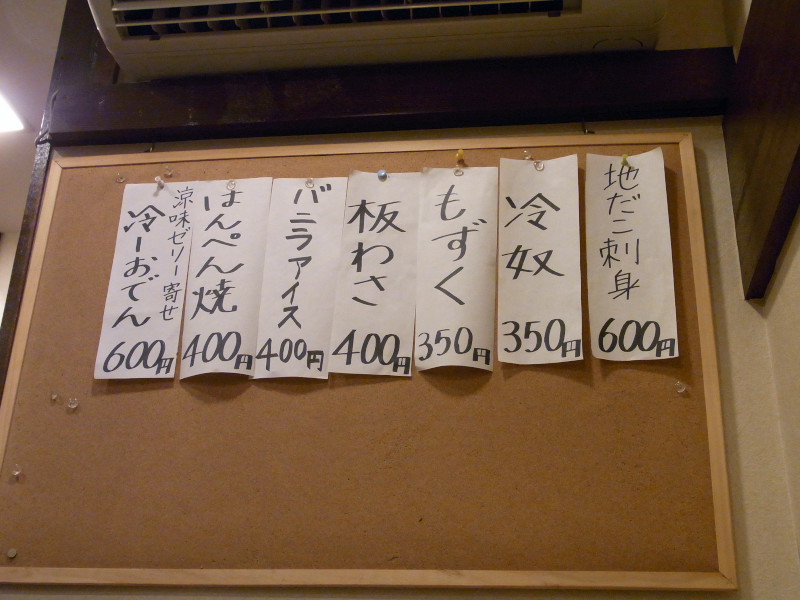 地だこ刺身
600円
冷奴
350円
もずく
350円
板わさ
400円
バニラアイス
400円
はんぺん焼
400円
涼味ゼリー寄せ
冷ーおでん
600円